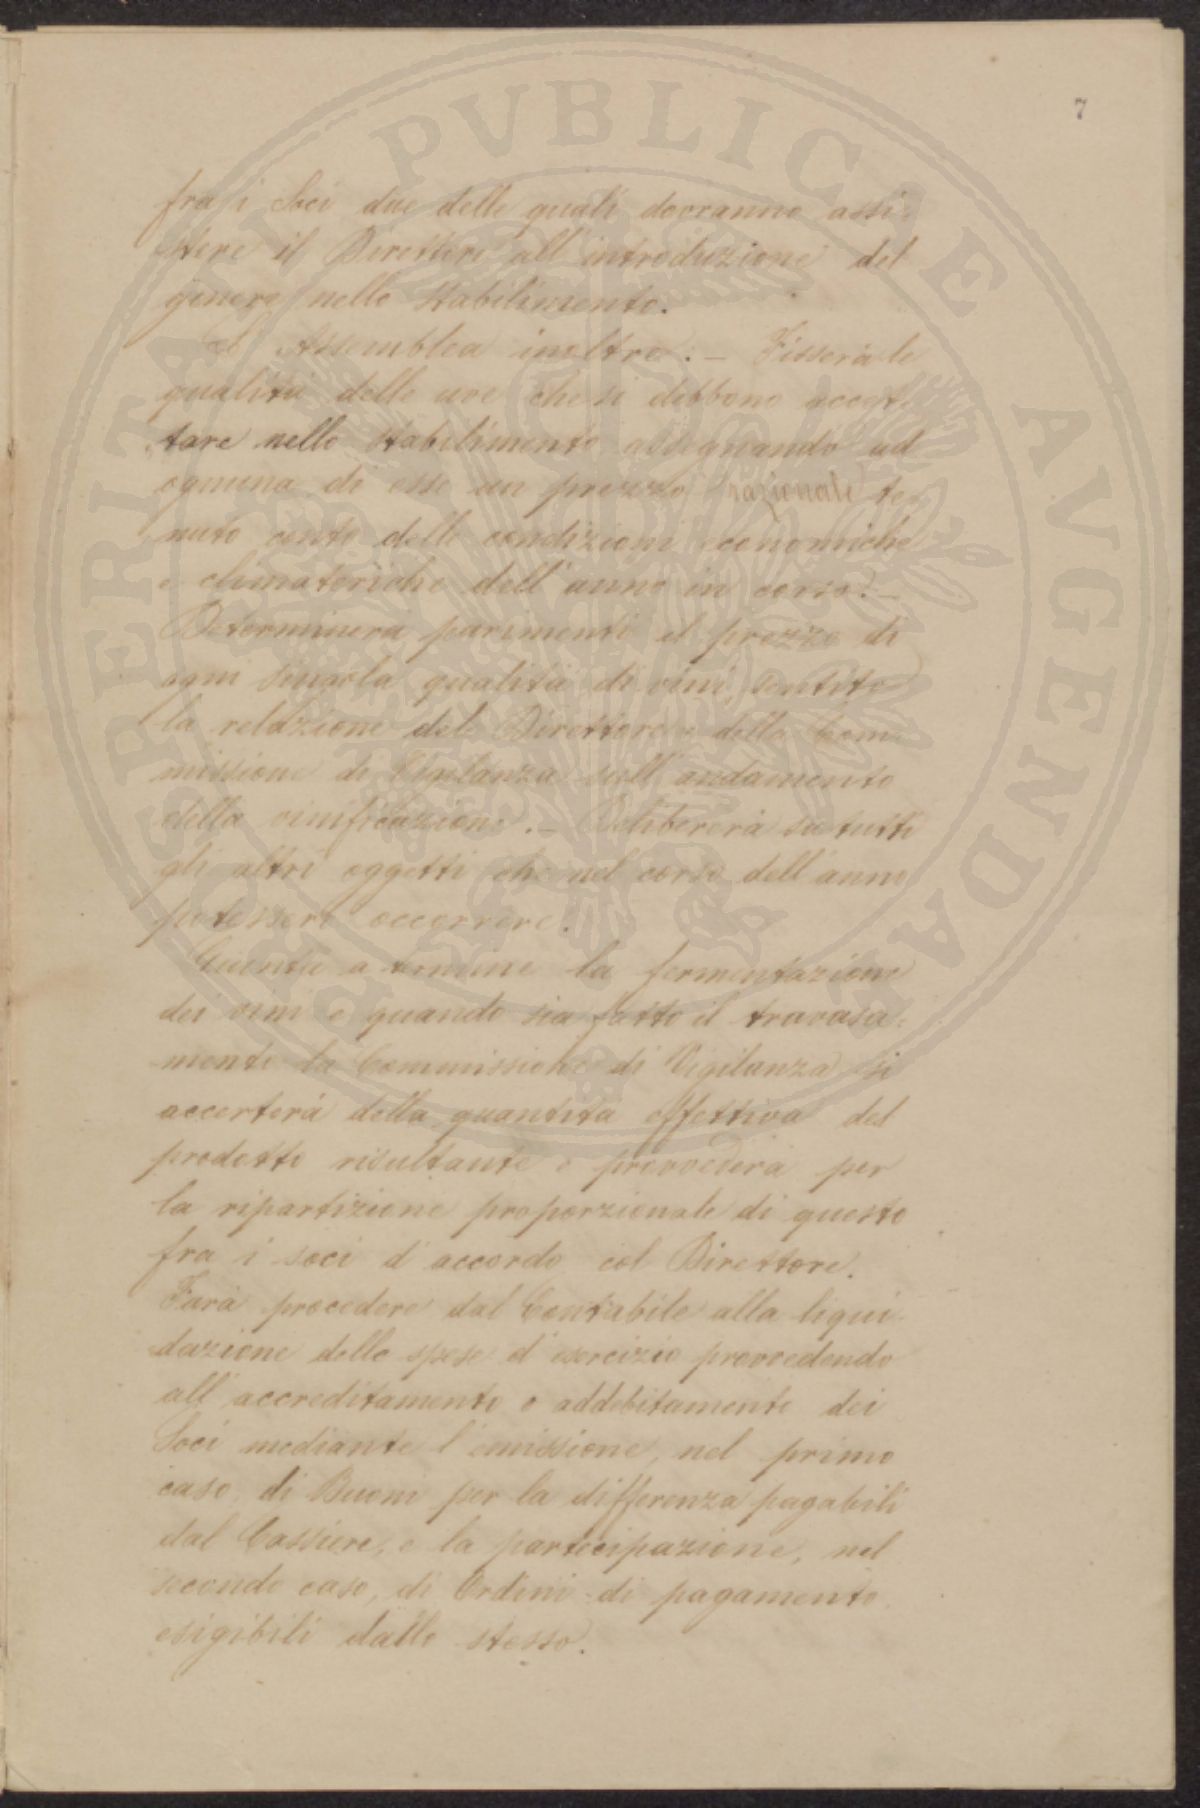 7
fra i Soci due delle quali dovranno assi-
stere il Direttore all'introduzione del
genere nello stabilimento.
L'Assemblea inoltre: – Fisserà le
qualità delle uve che si debbono accet-
tare nello stabilimento assegnando ad
ognuna di esse un prezzo razionale te-
nuto conto delle condizioni economiche
e climateriche dell'anno in corso. –
Determinerà parimenti il prezzo di
ogni singola qualità di vini, sentito
la relazione del Direttore e della Com-
missione di Vigilanza sull'andamento
della vinificazione. – Delibererà su tutti
gli altri oggetti che nel corso dell'anno
potessero occorrere.
Giunta a termine la fermentazione
dei vini e quando sia fatto il travasa-
mento la Commissione di Vigilanza si
accerterà della quantità effettiva del
prodotto risultante e provvederà per
la ripartizione proporzionale di questo
fra i soci d'accordo col Direttore.
Farà procedere dal Contabile alla liqui-
dazione delle spese d'esercizio provvedendo
all'accreditamento o addebitamento dei
Soci mediante l'emissione, nel primo
caso, di Buoni per la differenza pagabili
dal Cassiere, e la partecipazione, nel
secondo caso, di Ordini di pagamento
esigibili dallo stesso.
PROSPERITATI PVBLICAE AVGENDAE